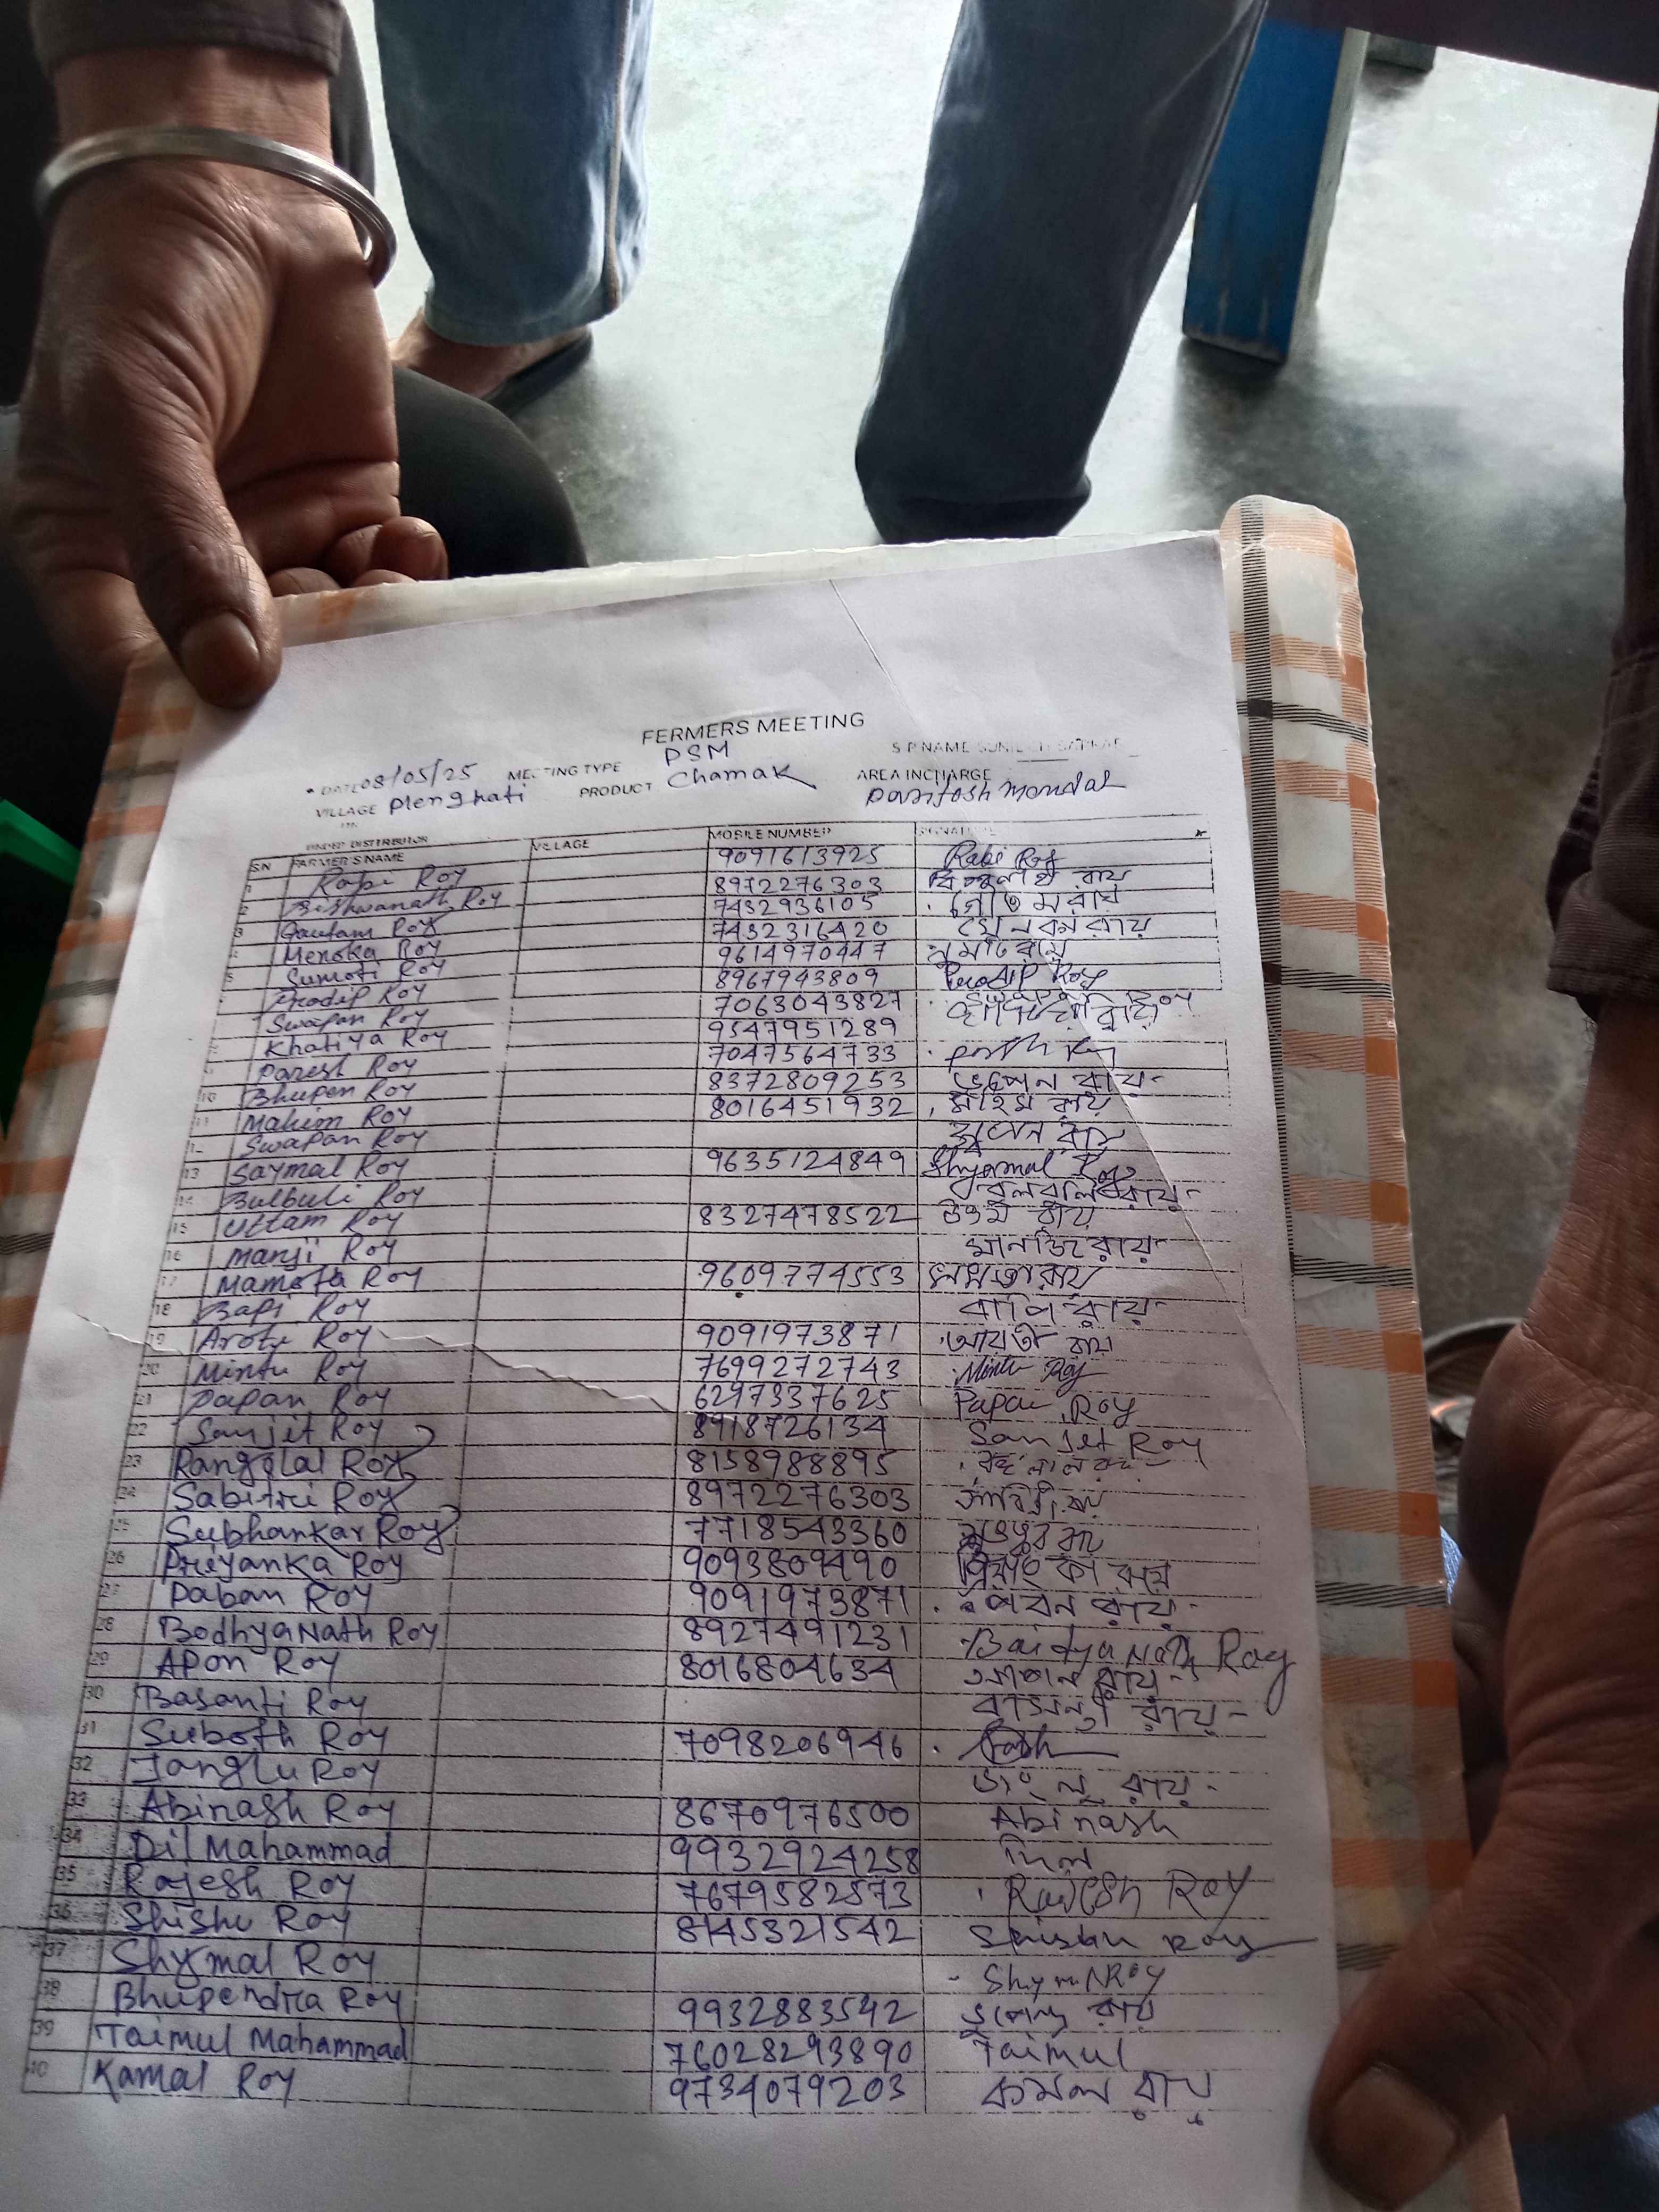 FERMERS MEETING
DATE 08/05/25 MEETING TYPE PSM S P NAME
VILLAGE Plenghati PRODUCT Chamak AREA INCHARGE Paritosh Mondal
UNDER DISTRIBUTOR
SN FARMER'S NAME VILLAGE MOBILE NUMBER SIGNATURE
1 Rabi Roy 9091613925 Rabi Roy
2 Bishwanath Roy 8972276303 রায়
3 Gautam Roy 7432936105 গৌতম রায়
4 Menoka Roy 7432316420 রায়
5 Sumoti Roy 9614970447 সুমতি রায়
Prodip Roy 8967943809 Prodip Roy
Swapan Roy 7063043827
Khatiya Roy 9547951289
Paresh Roy 7047564733
10 Bhupen Roy 8372809253 ভূপেন রায়
11 Mahim Roy 8016451932 মহিম রায়
Swapan Roy রায়
13 Saymal Roy 9635124849 Shyamal Roy
14 Bulbuli Roy বুলবুলি রায়
15 Uttam Roy 8327478522 উত্তম রায়
16 Manji Roy মানজি রায়
17 Mamota Roy 9609774553 মমতা রায়
18 Bapi Roy বাপি রায়
19 Aroti Roy 9091973871 আরতী রায়
20 Mintu Roy 7699272743 Mintu Roy
21 Papan Roy 6297337625 Papan Roy
22 Sanjit Roy 8918726134 Sanjit Roy
23 Ranglal Roy 8158988895
24 Sabitri Roy 8972276303 সাবিত্রী রায়
25 Subhankar Roy 7718543360 রায়
26 Priyanka Roy 9093809490 প্রিয়াংকা রায়
27 Paban Roy 9091973871 পবন রায়
28 BodhyaNath Roy 8927491231 Baidya Nath Roy
29 Apon Roy 8016804634 আপন রায়
30 Basanti Roy বাসন্তী রায়
31 Suboth Roy 7098206946
32 Janglu Roy জংলু রায়
33 Abinash Roy 8670976500 Abinash
34 Dil Mahammad 9932924258 দিল
35 Rajesh Roy 7679582573 Rajesh Roy
36 Shishu Roy 8145321542 Shishu Roy
37 Shymal Roy Shymal Roy
38 Bhupendra Roy 9932883542 ভূপেন্দ্র রায়
39 Taimul Mahammad 76028293890 Taimul
40 Kamal Roy 9734079203 কমল রায়